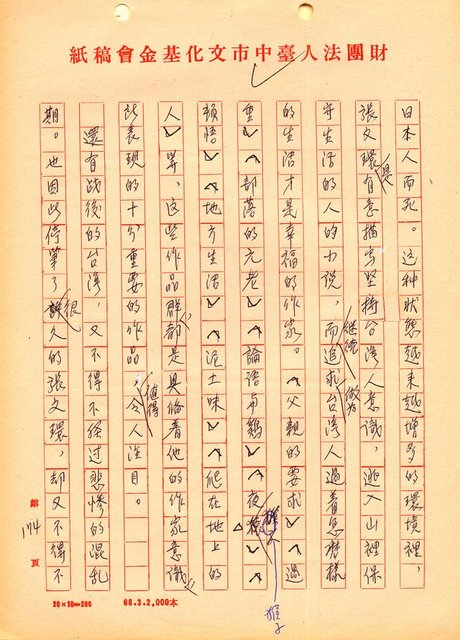 財團法人臺中市文化基金會稿紙
日本人而死。这种狀態越來越增多的環境裡,
張文環是有意描写堅持台湾人意識,逃入山裡保
守生活的人的小説,而継続追求做為台湾人過着怎麼樣
的生活才是幸福的作家。︿父親的要求﹀︿過
重﹀︿部落的元老﹀︿論語与鷄﹀︿夜猿﹀︿
頓悟﹀︿地方生活﹀︿泥土味﹀︿爬在地上的
人﹀等,这些作品群都是具俻着他的作家意識
所表現的十分重要的作品,值得令人注目。
還有战後的台湾,又不得不經过悲惨的混乱
期。也因此停筆了很久的張文環,却又不得不
猴子
第174頁
20×10=200
68.3.2,000本